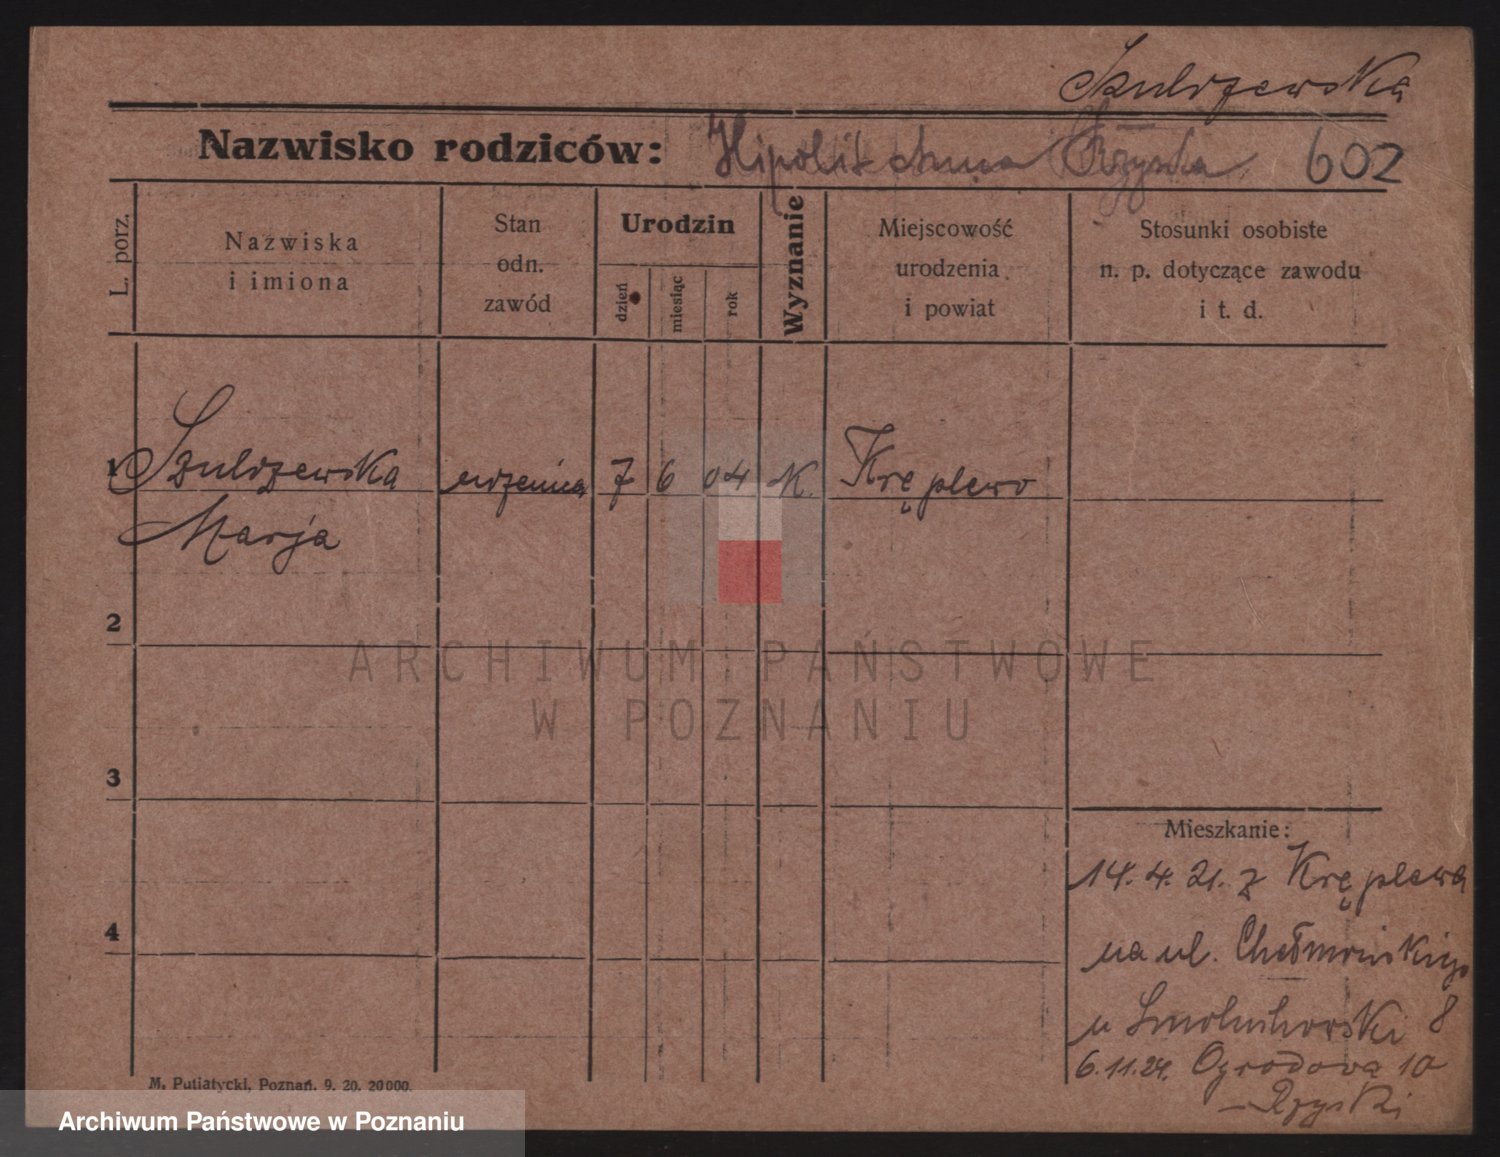 Szulczewska
Nazwisko rodziców: Hipolit Anna 602
L. porz.
Nazwiska
i imiona
Stan
odn.
zawód
Urodzin
dzień
miesiąc
rok
Wyznanie
Miejscowość
urodzenia
i powiat
Stosunki osobiste
n. p. dotyczące zawodu
i t. d.
1 Szulczewska uczenica 7 6 04 K. Kręplewo
Marja
2
3
4
Mieszkanie:
14. 4. 21. z Kręplewa
na ul. Chełmońskiego
u Smoluchowski 8
6.11.24. Ogrodowa 10
M. Putiatycki, Poznań. 9. 20. 20000.
ARCHIWUM PAŃSTWOWE
W POZNANIU
Archiwum Państwowe w Poznaniu